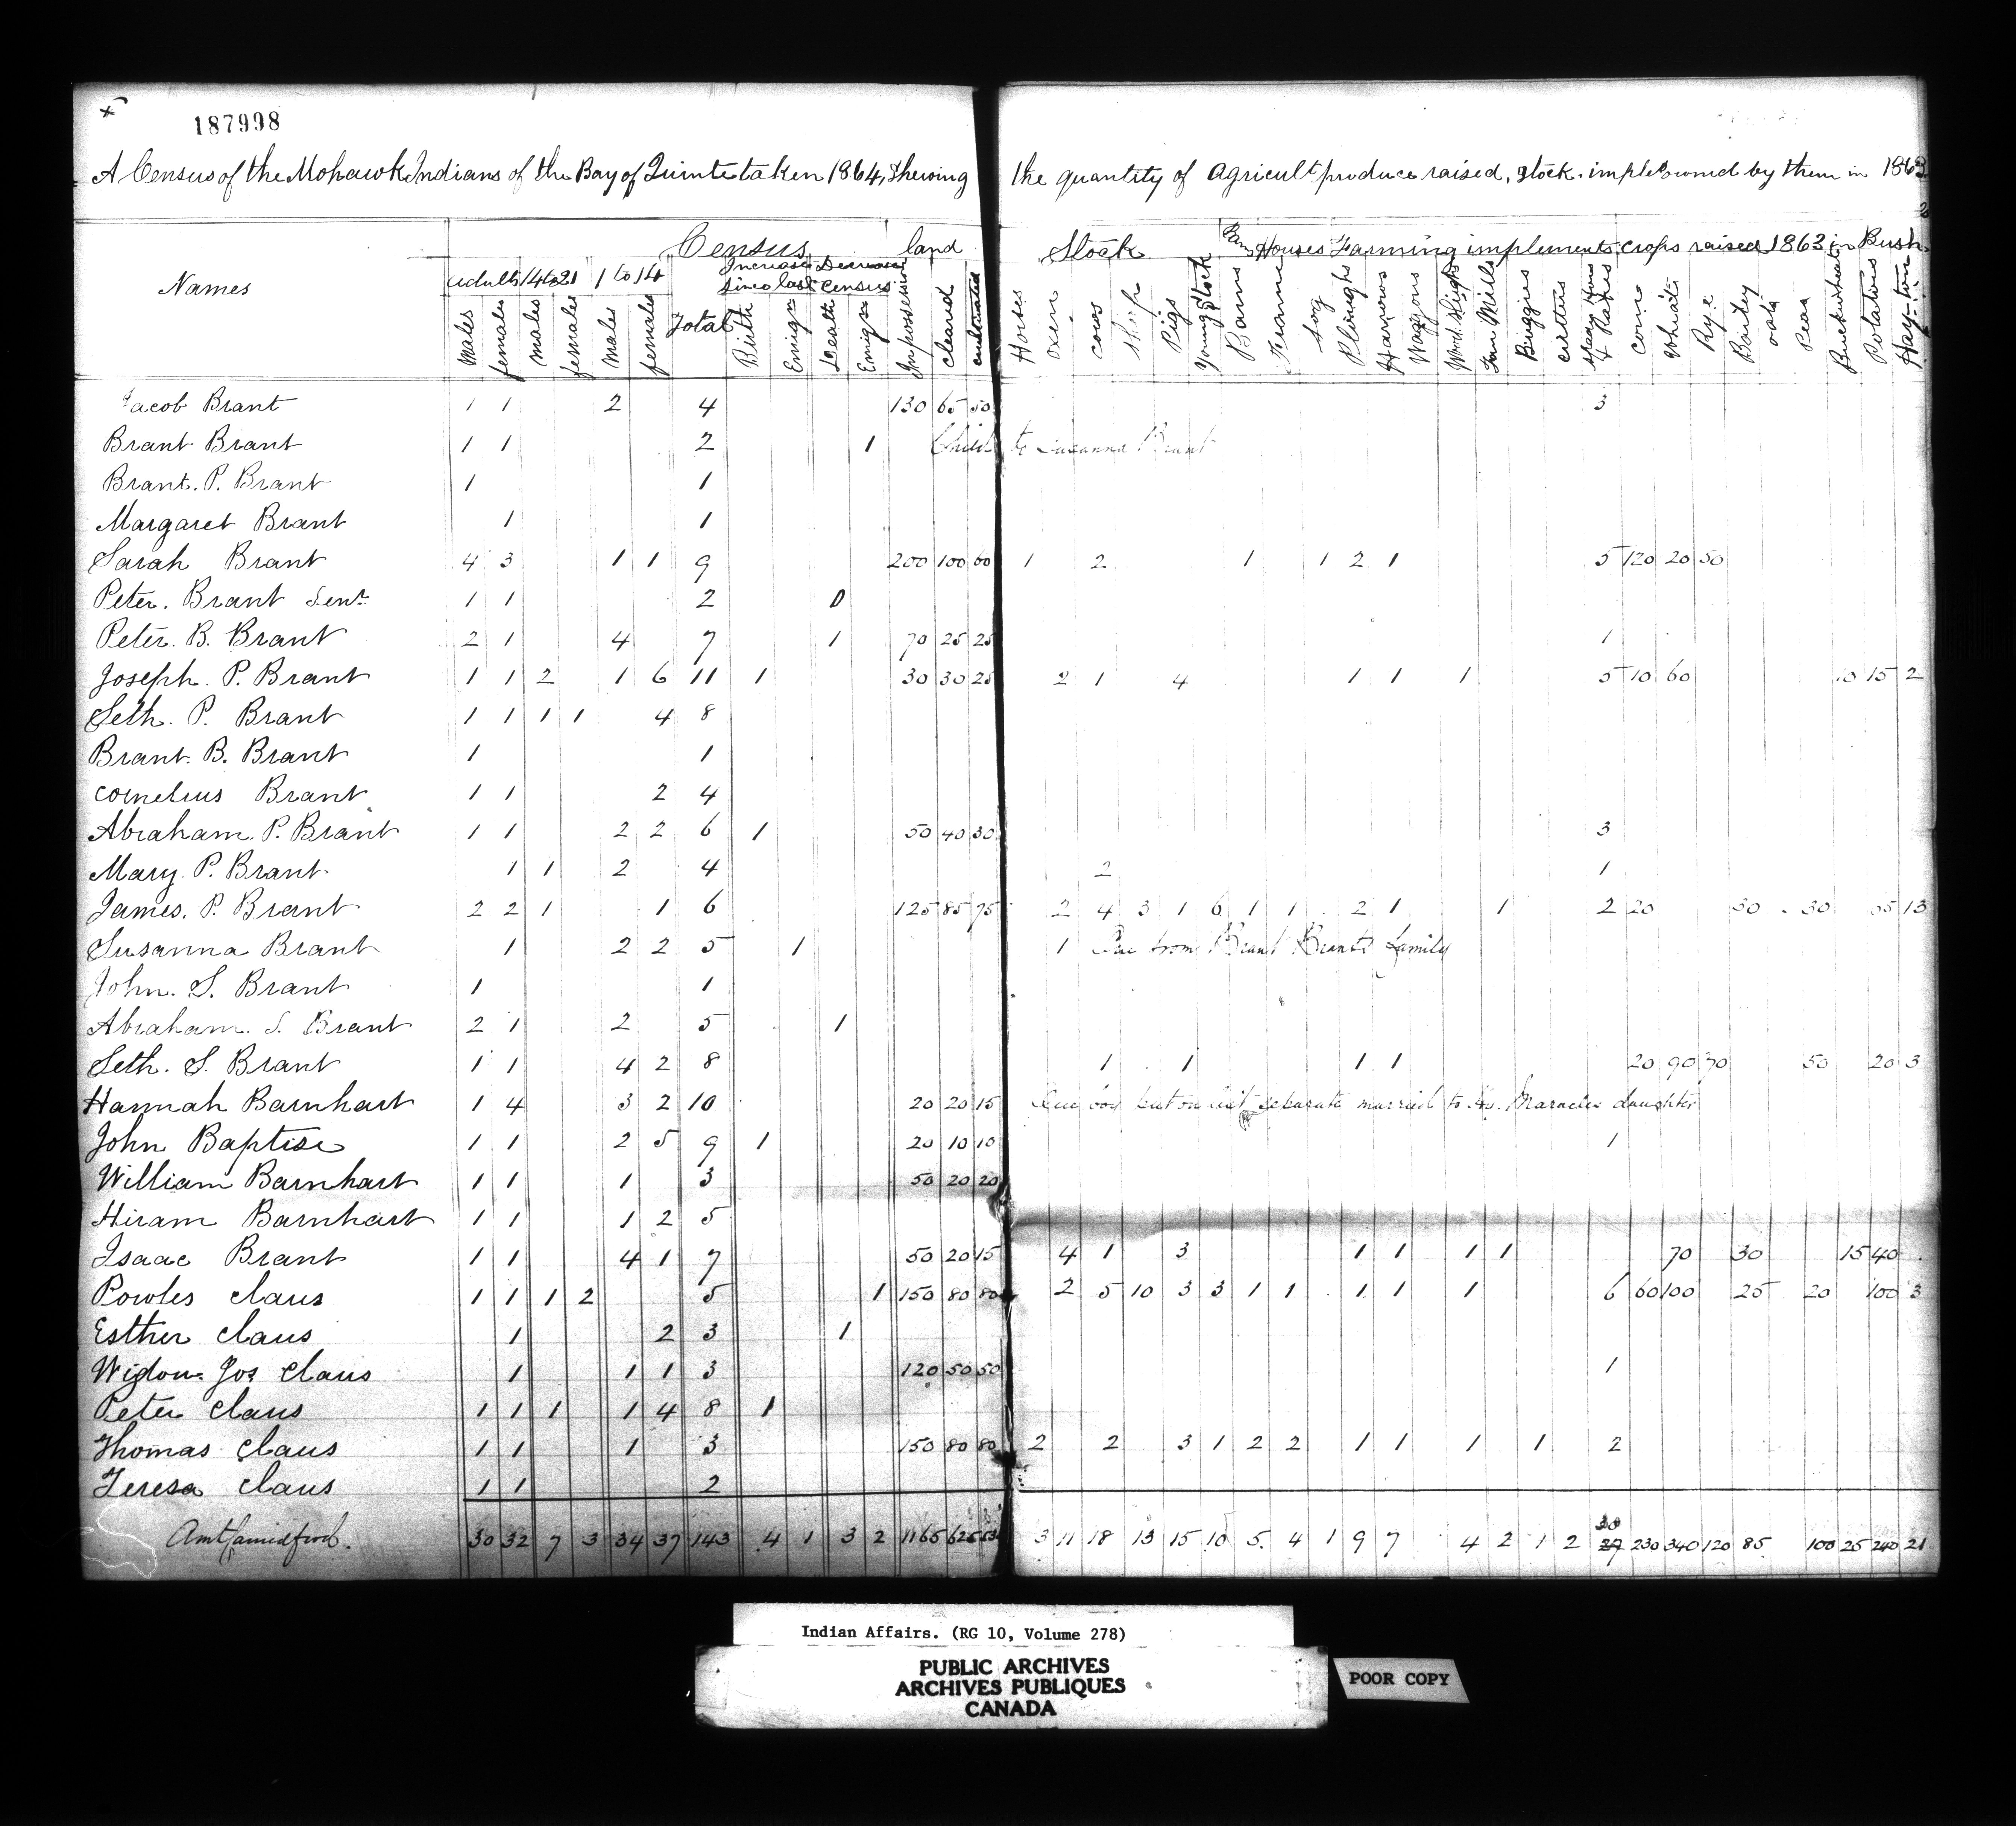 187998
A Census of the Mohawk Indians of the Bay of Quinte taken 1864, Shewing the quantity of Agricult produce raised, Stock. implts owned by them in 1863
Names Census land Stock Houses Farming implements crops raised 1863 in Bush
adults 14 to 21 1 to 14 Total Increase since last Decrease census
Males females Males females Males females Birth Emigrn Death Emign In possession cleared cultivated Horses oxen cows Sheep Pigs Young Stock Barns Frame Log Ploughs Harrows Waggons Wood Sleighs Fan Mills Buggies cutters corn Wheat Rye Barley oats Peas Buckwheat Potatoes Hay-ton
Jacob Brant 1 1 2 4 130 65 50 3
Brant Brant 1 1 2 1 Child to Susanna Brant
Brant. P. Brant 1 1
Margaret Brant 1 1
Sarah Brant 4 3 1 1 9 200 100 60 1 2 1 1 2 1 5 120 20 50
Peter. Brant Senr. 1 1 2 0
Peter. B. Brant 2 1 4 7 1 70 25 25 1
Joseph. P. Brant 1 1 2 1 6 11 1 30 30 25 2 1 4 1 1 1 5 10 60 10 15 2
Seth. P. Brant 1 1 1 1 4 8
Brant. B. Brant 1 1
Cornelius Brant 1 1 2 4
Abraham. P. Brant 1 1 2 2 6 1 50 40 30 3
Mary. P. Brant 1 1 2 4 2 1
James. P. Brant 2 2 1 1 6 125 85 75 2 4 3 1 6 1 1 2 1 1 2 20 30 30 65 13
Susanna Brant 1 2 2 5 1 1 One from Brant Brants family
John. S. Brant 1 1
Abraham. S. Brant 2 1 2 5 1
Seth. S. Brant 1 1 4 2 8 1 1 1 1 20 90 70 50 20 3
Hannah Barnhart 1 4 3 2 10 20 20 15 One boy put on list separate married to Maracles daughter
John Baptise 1 1 2 5 9 1 20 10 10 1
William Barnhart 1 1 1 3 50 20 20
Hiram Barnhart 1 1 1 2 5
Isaac Brant 1 1 4 1 7 50 20 15 4 1 3 1 1 1 1 70 30 15 40
Powles Claus 1 1 1 2 5 1 150 80 80 2 5 10 3 3 1 1 1 1 1 6 60 100 25 20 100 3
Esther Claus 1 2 3 1
Widow Jos Claus 1 1 1 3 120 50 50 1
Peter Claus 1 1 1 1 4 8 1
Thomas Claus 1 1 1 3 150 80 80 2 2 3 1 2 2 1 1 1 1 2
Teresa Claus 1 1 2
Amt Carried forwd. 30 32 7 3 34 37 143 4 1 3 2 1165 625 3 11 18 13 15 10 5 4 1 9 7 4 2 1 2 27 230 340 120 85 100 25 240 21
Indian Affairs. (RG 10, Volume 278)
PUBLIC ARCHIVES
ARCHIVES PUBLIQUES
CANADA
POOR COPY